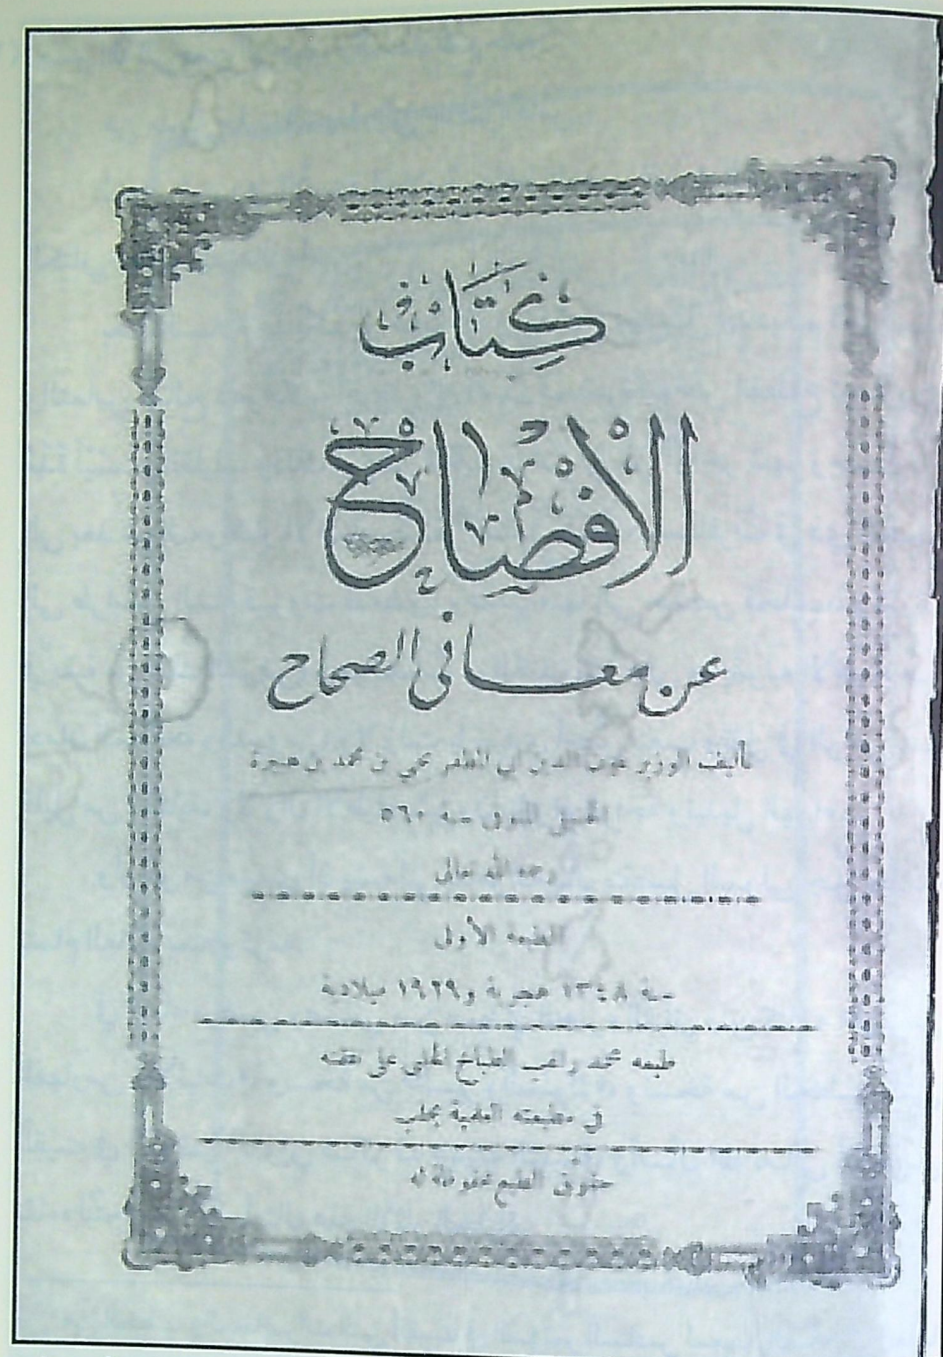 كتاب
الإفصاح
عن معاني الصحاح
تأليف الوزير عون الدين ابي المظفر يحيى بن محمد بن هبيرة
الحنبلي المتوفى سنة ٥٦٠
رحمه الله تعالى
الطبعة الأولى
سنة ١٣٤٨ هجرية و١٩٢٩ ميلادية
طبعه محمد راغب الطباخ الحلبي على نفقته
في مطبعته العلمية بحلب
حقوق الطبع محفوظة له